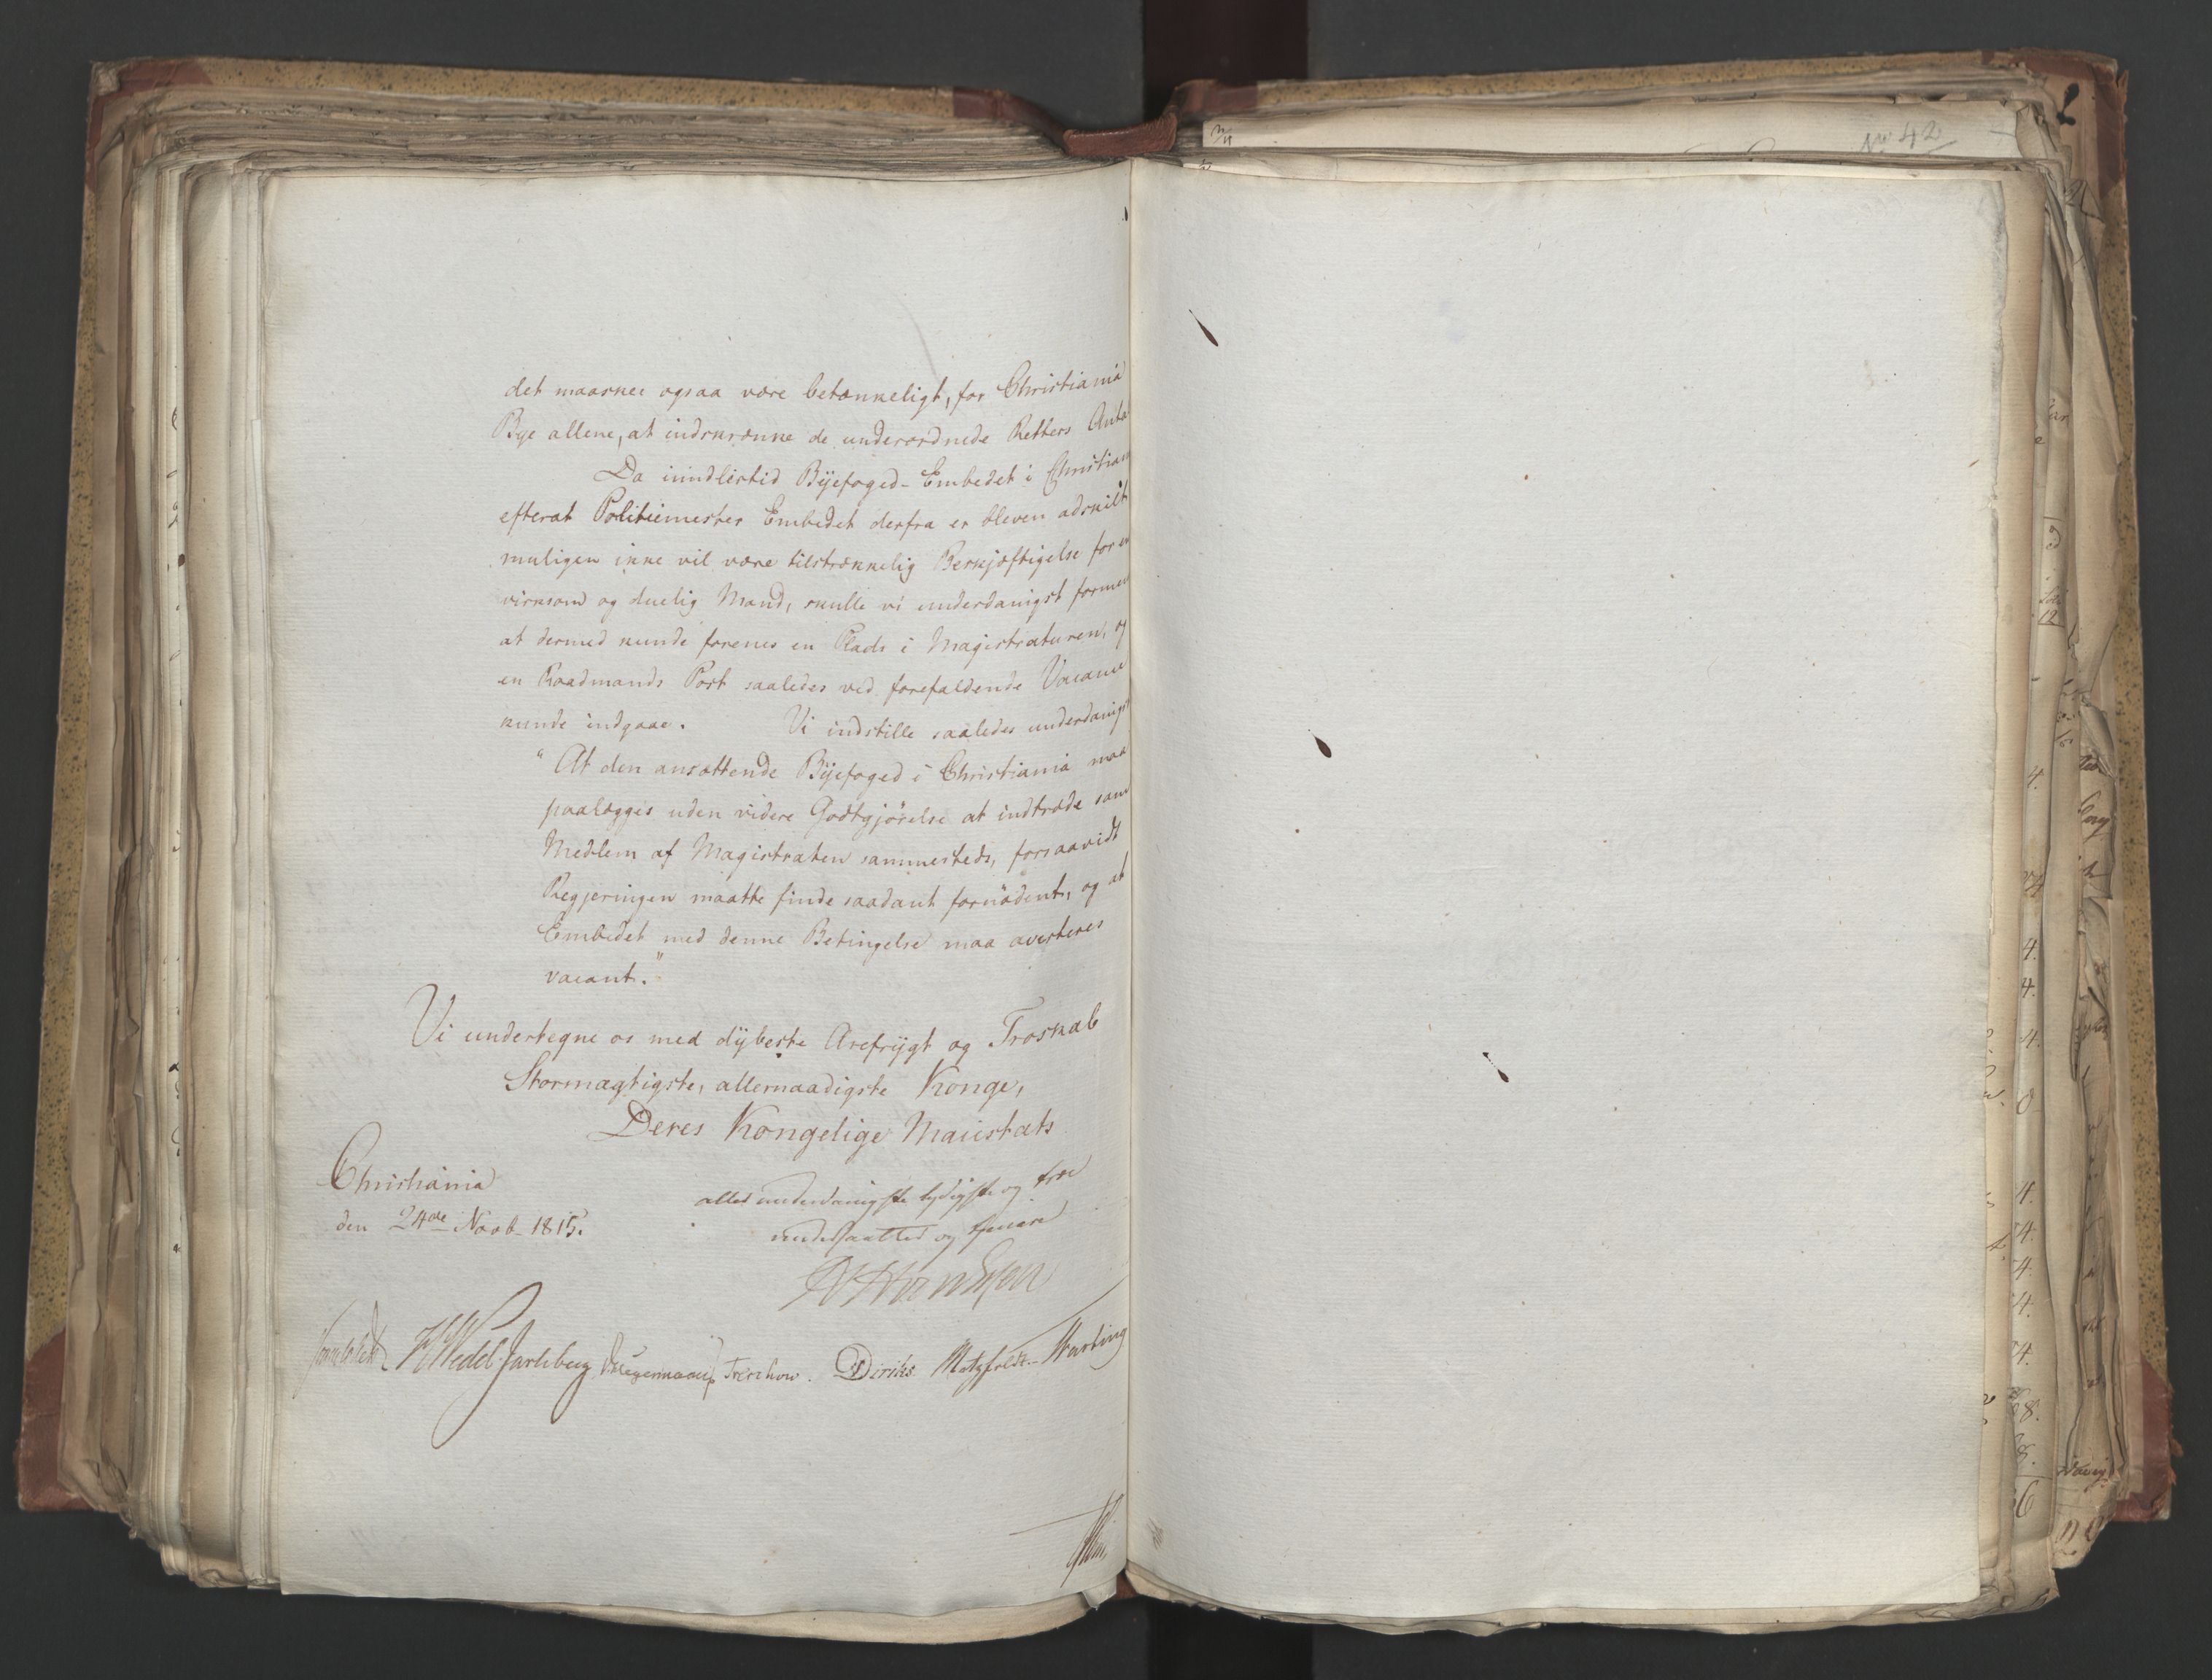 det maaskee ogsaa være betænkeligt, for Christiania
Bye allene, at indskrænke de underordnede Retters Anta
Da imidlertid Byefoged-Embedet i Christian
efterat Politiemester Embedet derfra er bleven adskilt
muligen ikke vil være tilstrækkelig Beskjæftigelse for en
virksom og duelig Mand, skulle vi underdanigst formen
at dermed kunde forenes en Plads i Magistraturen, og
en Raadmands Post saaledes ved forefaldende Vacance
kunde indgaae. Vi indstille saaledes underdanigst
"At den ansættende Byefoged i Christiania maa
paalægges uden videre Godtgjörelse at indtræde som
Medlem af Magistraten sammesteds, forsaavidt
Regjeringen maatte finde saadant fornödent, og at
Embedet med denne Betingelse maa averteres
vacant."
Vi undertegne os med dybeste Ærefrygt og Troskab
Stormægtigste, allernaadigste Konge,
Deres Kongelige Maiestæts
Christiania
den 24de Novb. 1815.
allerunderdanigste lydigste og troe
undersaatter og tienere
Wedel Jarlsberg Treschow. Diriks Motzfeldt
No 42